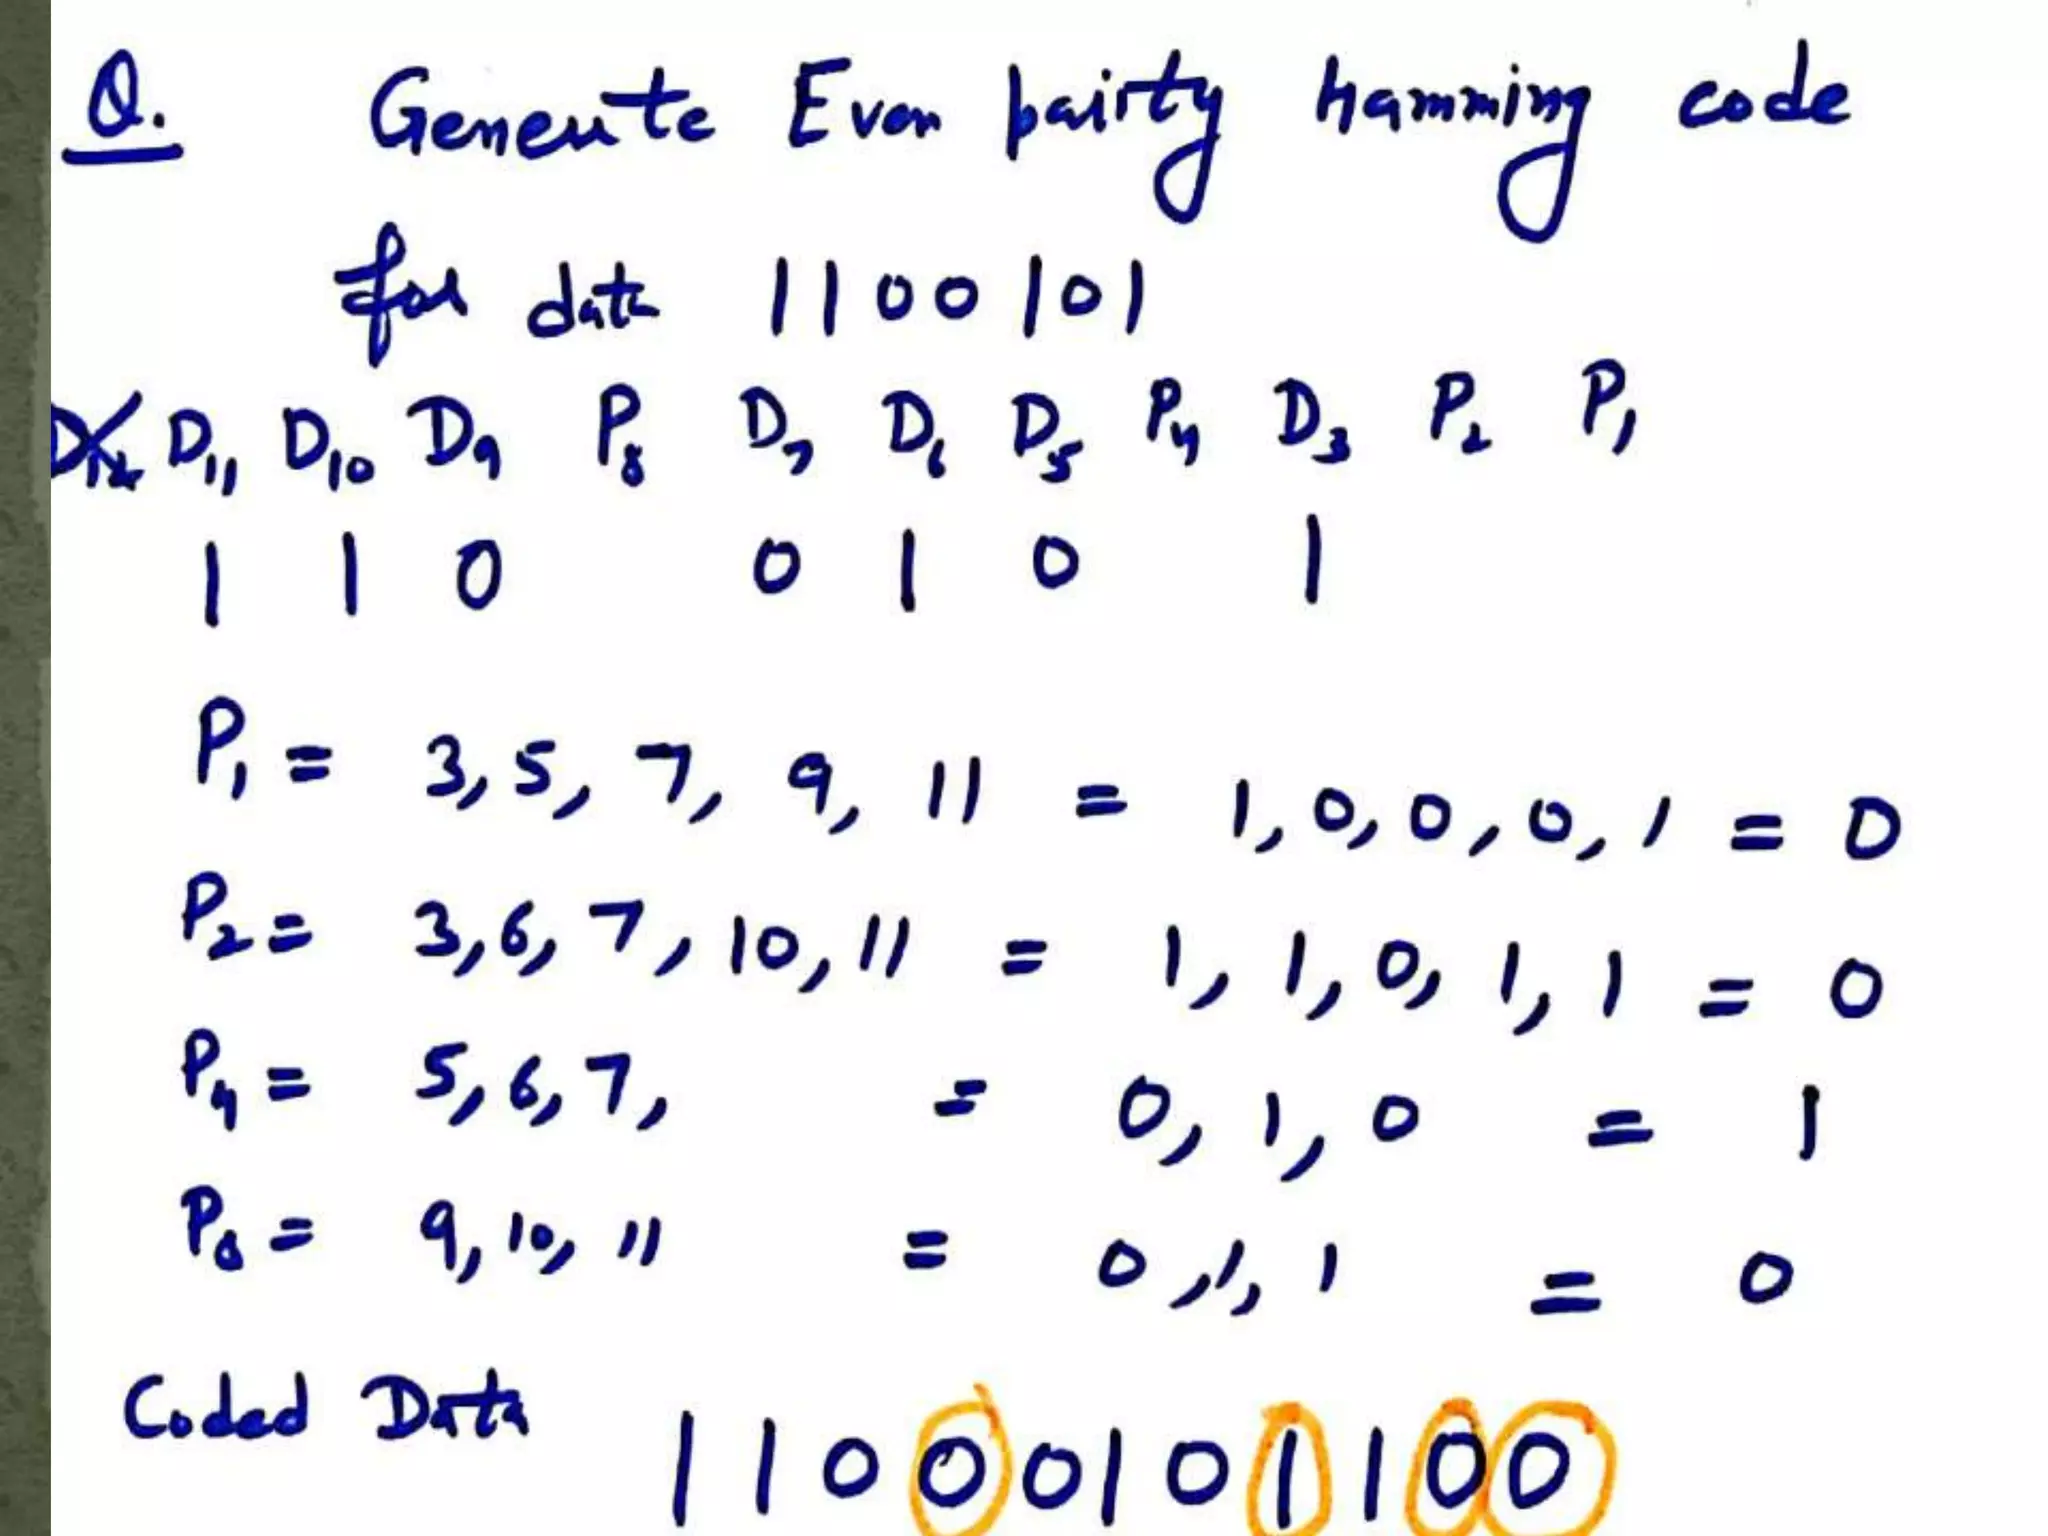 Q. Generate Even pairty hamming code
for data 1100101
D12 D11 D10 D9 P8 D7 D6 D5 P4 D3 P2 P1
1 1 0 0 1 0 1
P1 = 3, 5, 7, 9, 11 = 1, 0, 0, 0, 1 = 0
P2 = 3, 6, 7, 10, 11 = 1, 1, 0, 1, 1 = 0
P4 = 5, 6, 7, = 0, 1, 0 = 1
P8 = 9, 10, 11 = 0, 1, 1 = 0
Coded Data 11000101100